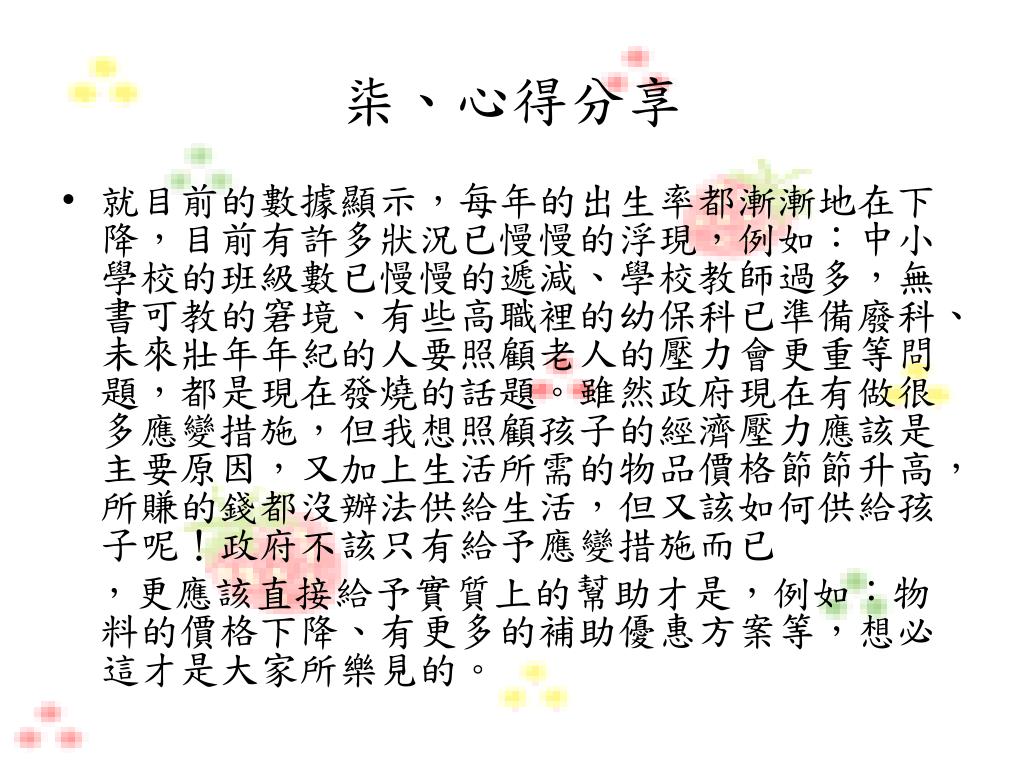 柒、心得分享
• 就目前的數據顯示，每年的出生率都漸漸地在下
降，目前有許多狀況已慢慢的浮現，例如：中小
學校的班級數已慢慢的遞減、學校教師過多，無
書可教的窘境、有些高職裡的幼保科已準備廢科、
未來壯年年紀的人要照顧老人的壓力會更重等問
題，都是現在發燒的話題。雖然政府現在有做很
多應變措施，但我想照顧孩子的經濟壓力應該是
主要原因，又加上生活所需的物品價格節節升高，
所賺的錢都沒辦法供給生活，但又該如何供給孩
子呢！政府不該只有給予應變措施而已
，更應該直接給予實質上的幫助才是，例如：物
料的價格下降、有更多的補助優惠方案等，想必
這才是大家所樂見的。